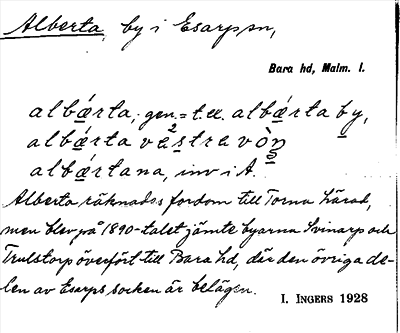 Alberta, by i Esarps sn,
Bara hd, Malm. l.
albærta; gen. = t.ex. albærta by,
albærta västra vòŋ
albærtana, inv. i A.
Alberta räknades fordom till Torna härad,
men blev på 1890-talet jämte byarna Svinarp och
Trulstorp överfört till Bara hd, där den övriga de-
len av Esarps socken är belägen.
I. INGERS 1928